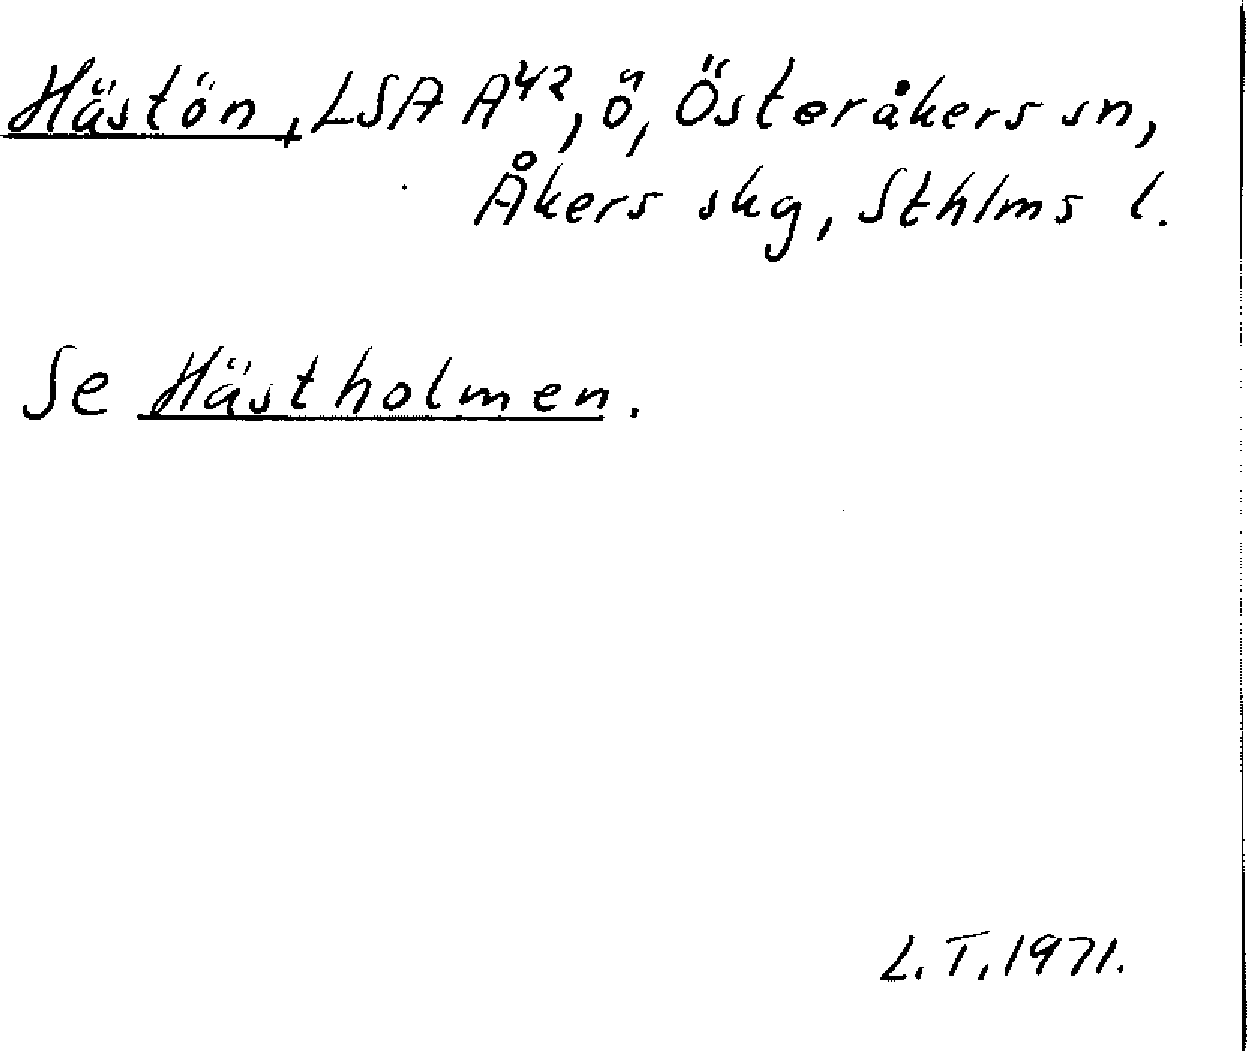 Hästön, LSA A⁴², ö, Österåkers sn,
Åkers skg, Sthlms l.
Se Hästholmen.
L.T. 1971.